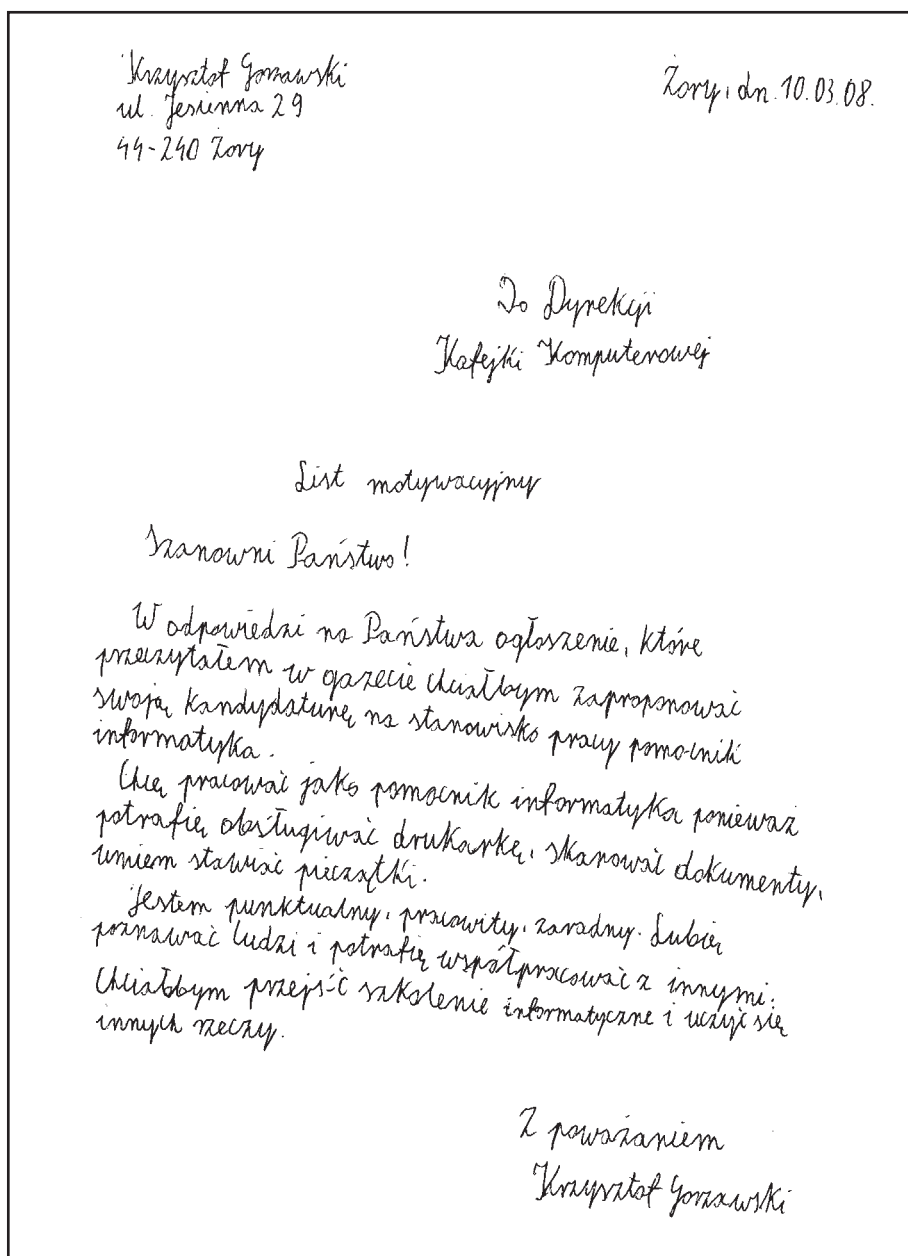 Krzysztof Gorzawski
ul. Jesienna 29
44-240 Żory
Żory, dn. 10.03.08.
Do Dyrekcji
Kafejki Komputerowej
List motywacyjny
Szanowni Państwo!
W odpowiedzi na Państwa ogłoszenie, które
przeczytałem w gazecie chciałbym zaproponować
swoją kandydaturę na stanowisko pracy pomocnik
informatyka.
Chcę pracować jako pomocnik informatyka ponieważ
potrafię obsługiwać drukarkę, skanować dokumenty,
umiem stawiać pieczątki.
Jestem punktualny, pracowity, zaradny. Lubię
poznawać ludzi i potrafię współpracować z innymi.
Chciałbym przejść szkolenie informatyczne i uczyć się
innych rzeczy.
Z poważaniem
Krzysztof Gorzawski